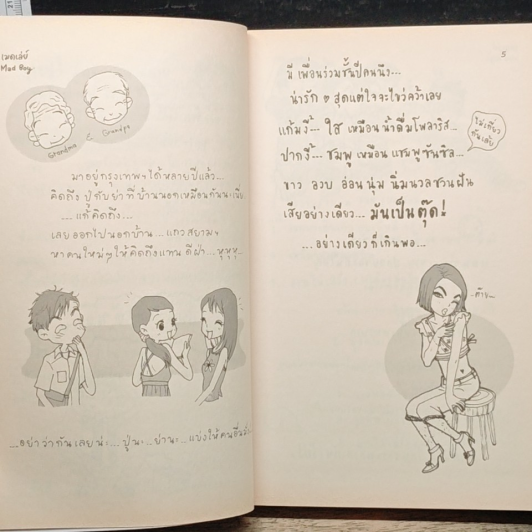 เมดเล่ย์
Mad Boy
Grandma & Grandpa
มาอยู่กรุงเทพฯได้หลายปีแล้ว...
คิดถึง ปู่กับย่าที่บ้านนอกเหมือนกันนะเนี่ย
....แก้คิดถึง....
เลยออกไปนอกบ้าน... แถวสยามฯ
หาคนใหม่ๆให้คิดถึงแทน ดีฝ่า... หุหุหุ...
...อย่าว่ากันเลยน่ะ... ปู่นะ... ย่านะ... แบ่งให้คนอื่น
5
มี เพื่อนร่วมชั้นปีคนนึง...
น่ารัก ๆ สุดแต่ใจจะไขว่คว้าเอย
แก้มงี้ ใส เหมือน น้ำดื่มโพลาริส...
ปากงี้ ชมพู เหมือน แชมพูซันซิล...
ไม่เกี่ยว
กันเล้ย
ขาว อวบ อ่อน นุ่ม นิ่มนวลชวนฝัน
เสียอย่างเดียว... มันเป็นตุ๊ด!
...อย่างเดียว ก็เกินพอ...